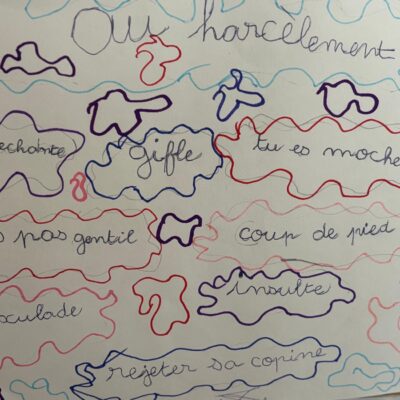 Ou harcèlement
echante
gifle
tu es moche
s pas gentil
coup de pied
sculade
insulte
rejeter sa copine